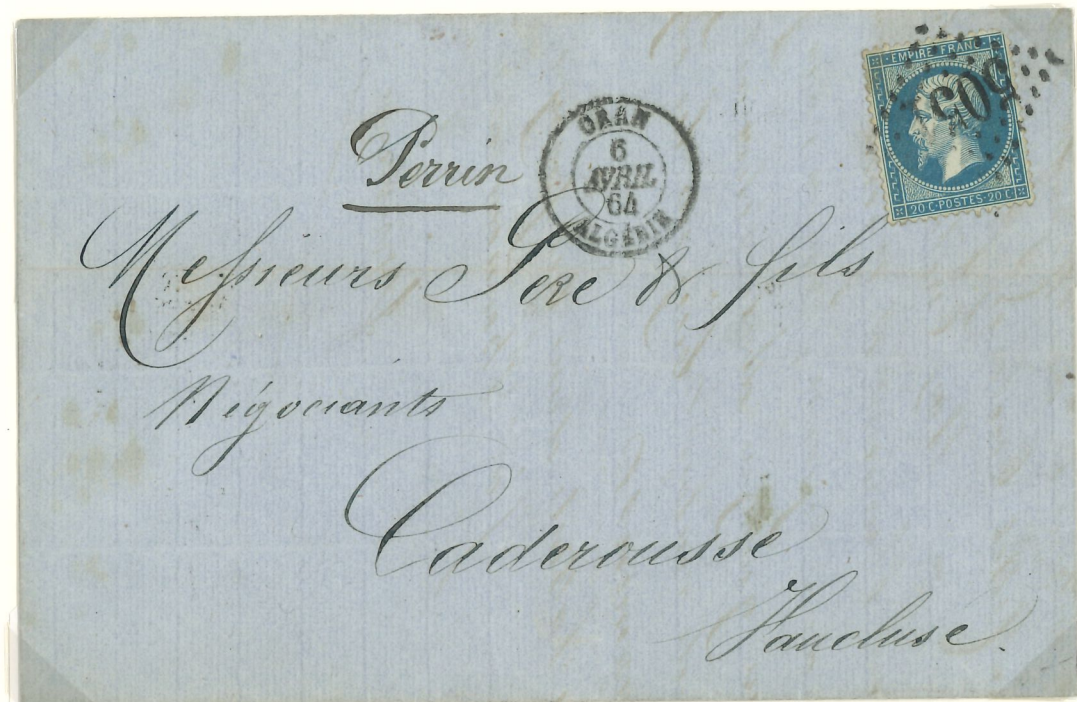 EMPIRE FRANC
20 C·POSTES·20 C
ORAN
6
AVRIL
64
ALGÉRIE
Perrin
Messieurs Pere & fils
Négociants
Caderousse
Vaucluse.